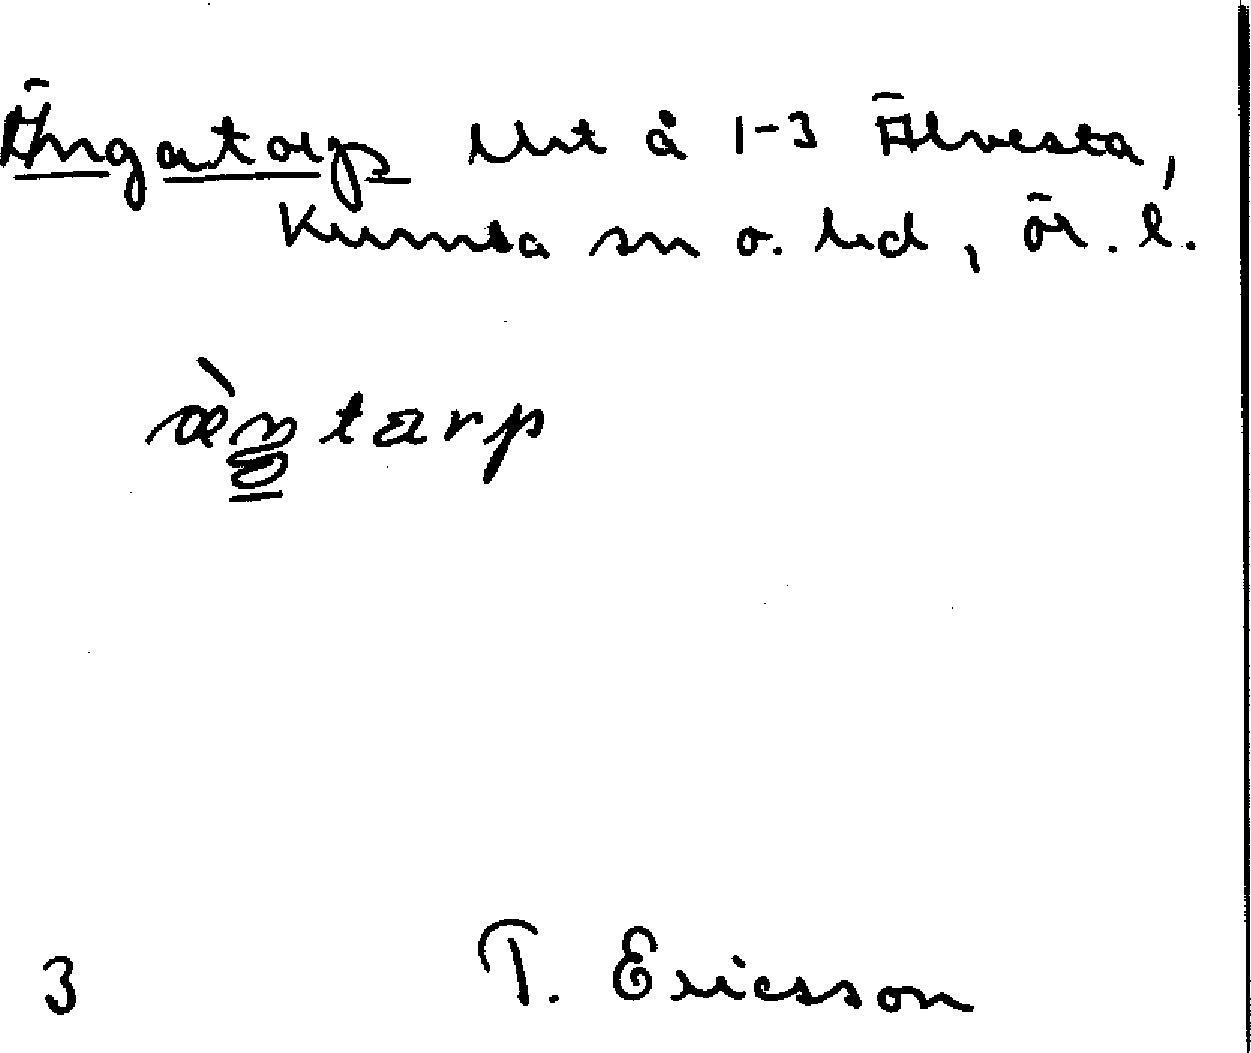 Ängatorp lht å 1-3 Älvesta,
Kumla sn o. hd, ör. l.
tarp
3 T. Ericsson